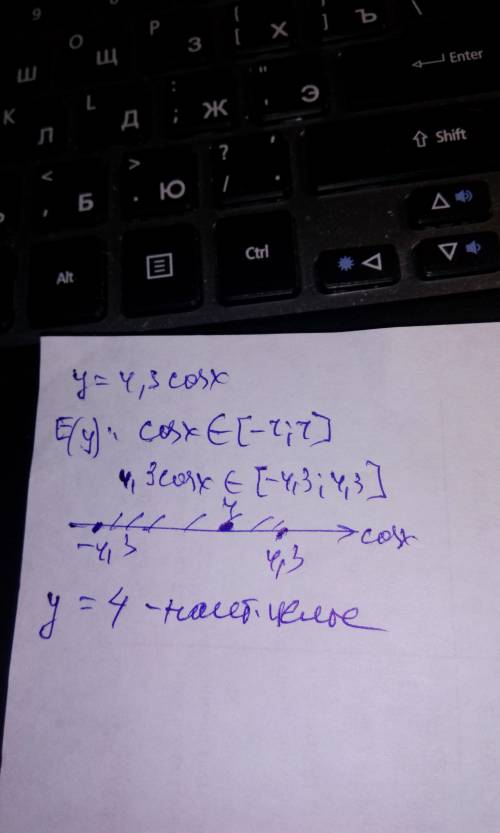 9 Р { [ Х } ] Ъ \
Ш O Щ З Enter
K Л L Д : ; Ж " , Э
Shift
< , Б > . Ю ? / , .
Alt Ctrl
y = 4,3 cosx
E(y): cosx ∈ [-1;1]
4,3cosx ∈ [-4,3; 4,3]
4
-4,3 4,3 cosx
y = 4 - наиб. целое